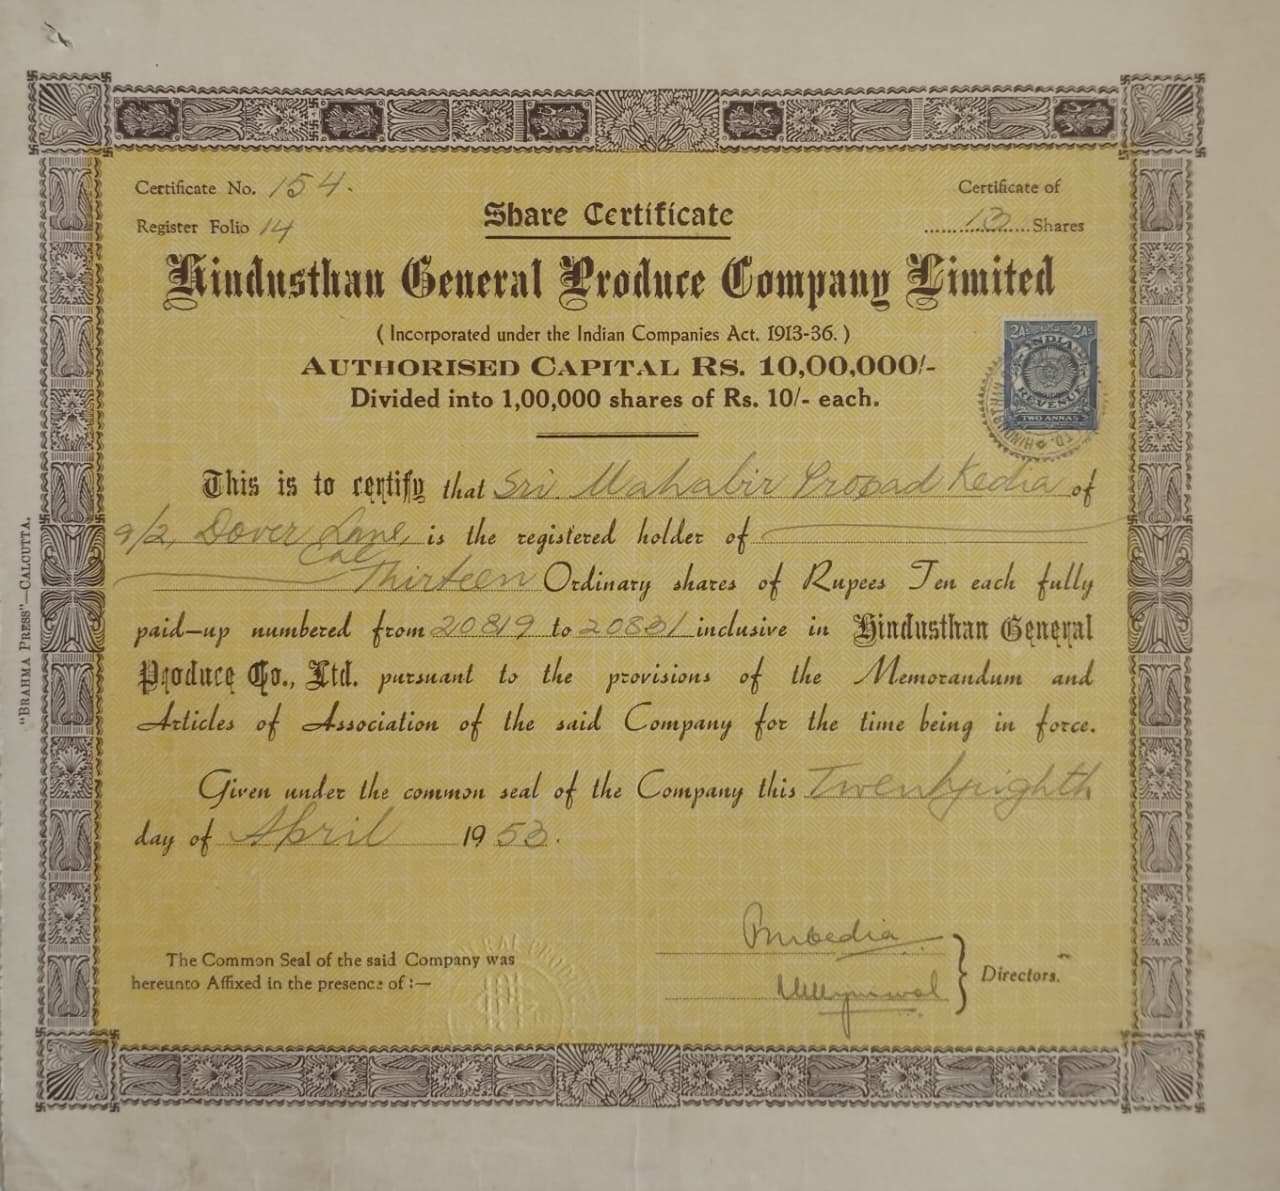 Certificate No. 154.
Certificate of
Register Folio 14
13 Shares
Share Certificate
Hindusthan General Produce Company Limited
( Incorporated under the Indian Companies Act. 1913-36. )
AUTHORISED CAPITAL RS. 10,00,000/-
Divided into 1,00,000 shares of Rs. 10/- each.
2As 2As
INDIA
REVENUE
TWO ANNAS
This is to certify that Sri Mahabir Prosad Kedia of
9/2, Dover Lane, is the registered holder of
Cal
Thirteen Ordinary shares of Rupees Ten each fully
paid-up numbered from 20819 to 20831 inclusive in Hindusthan General
Produce Co., Ltd. pursuant to the provisions of the Memorandum and
Articles of Association of the said Company for the time being in force.
Given under the common seal of the Company this Twentyeighth
day of April 1953.
The Common Seal of the said Company was
hereunto Affixed in the presence of :—
Directors.
"BRAHMA PRESS"—CALCUTTA.